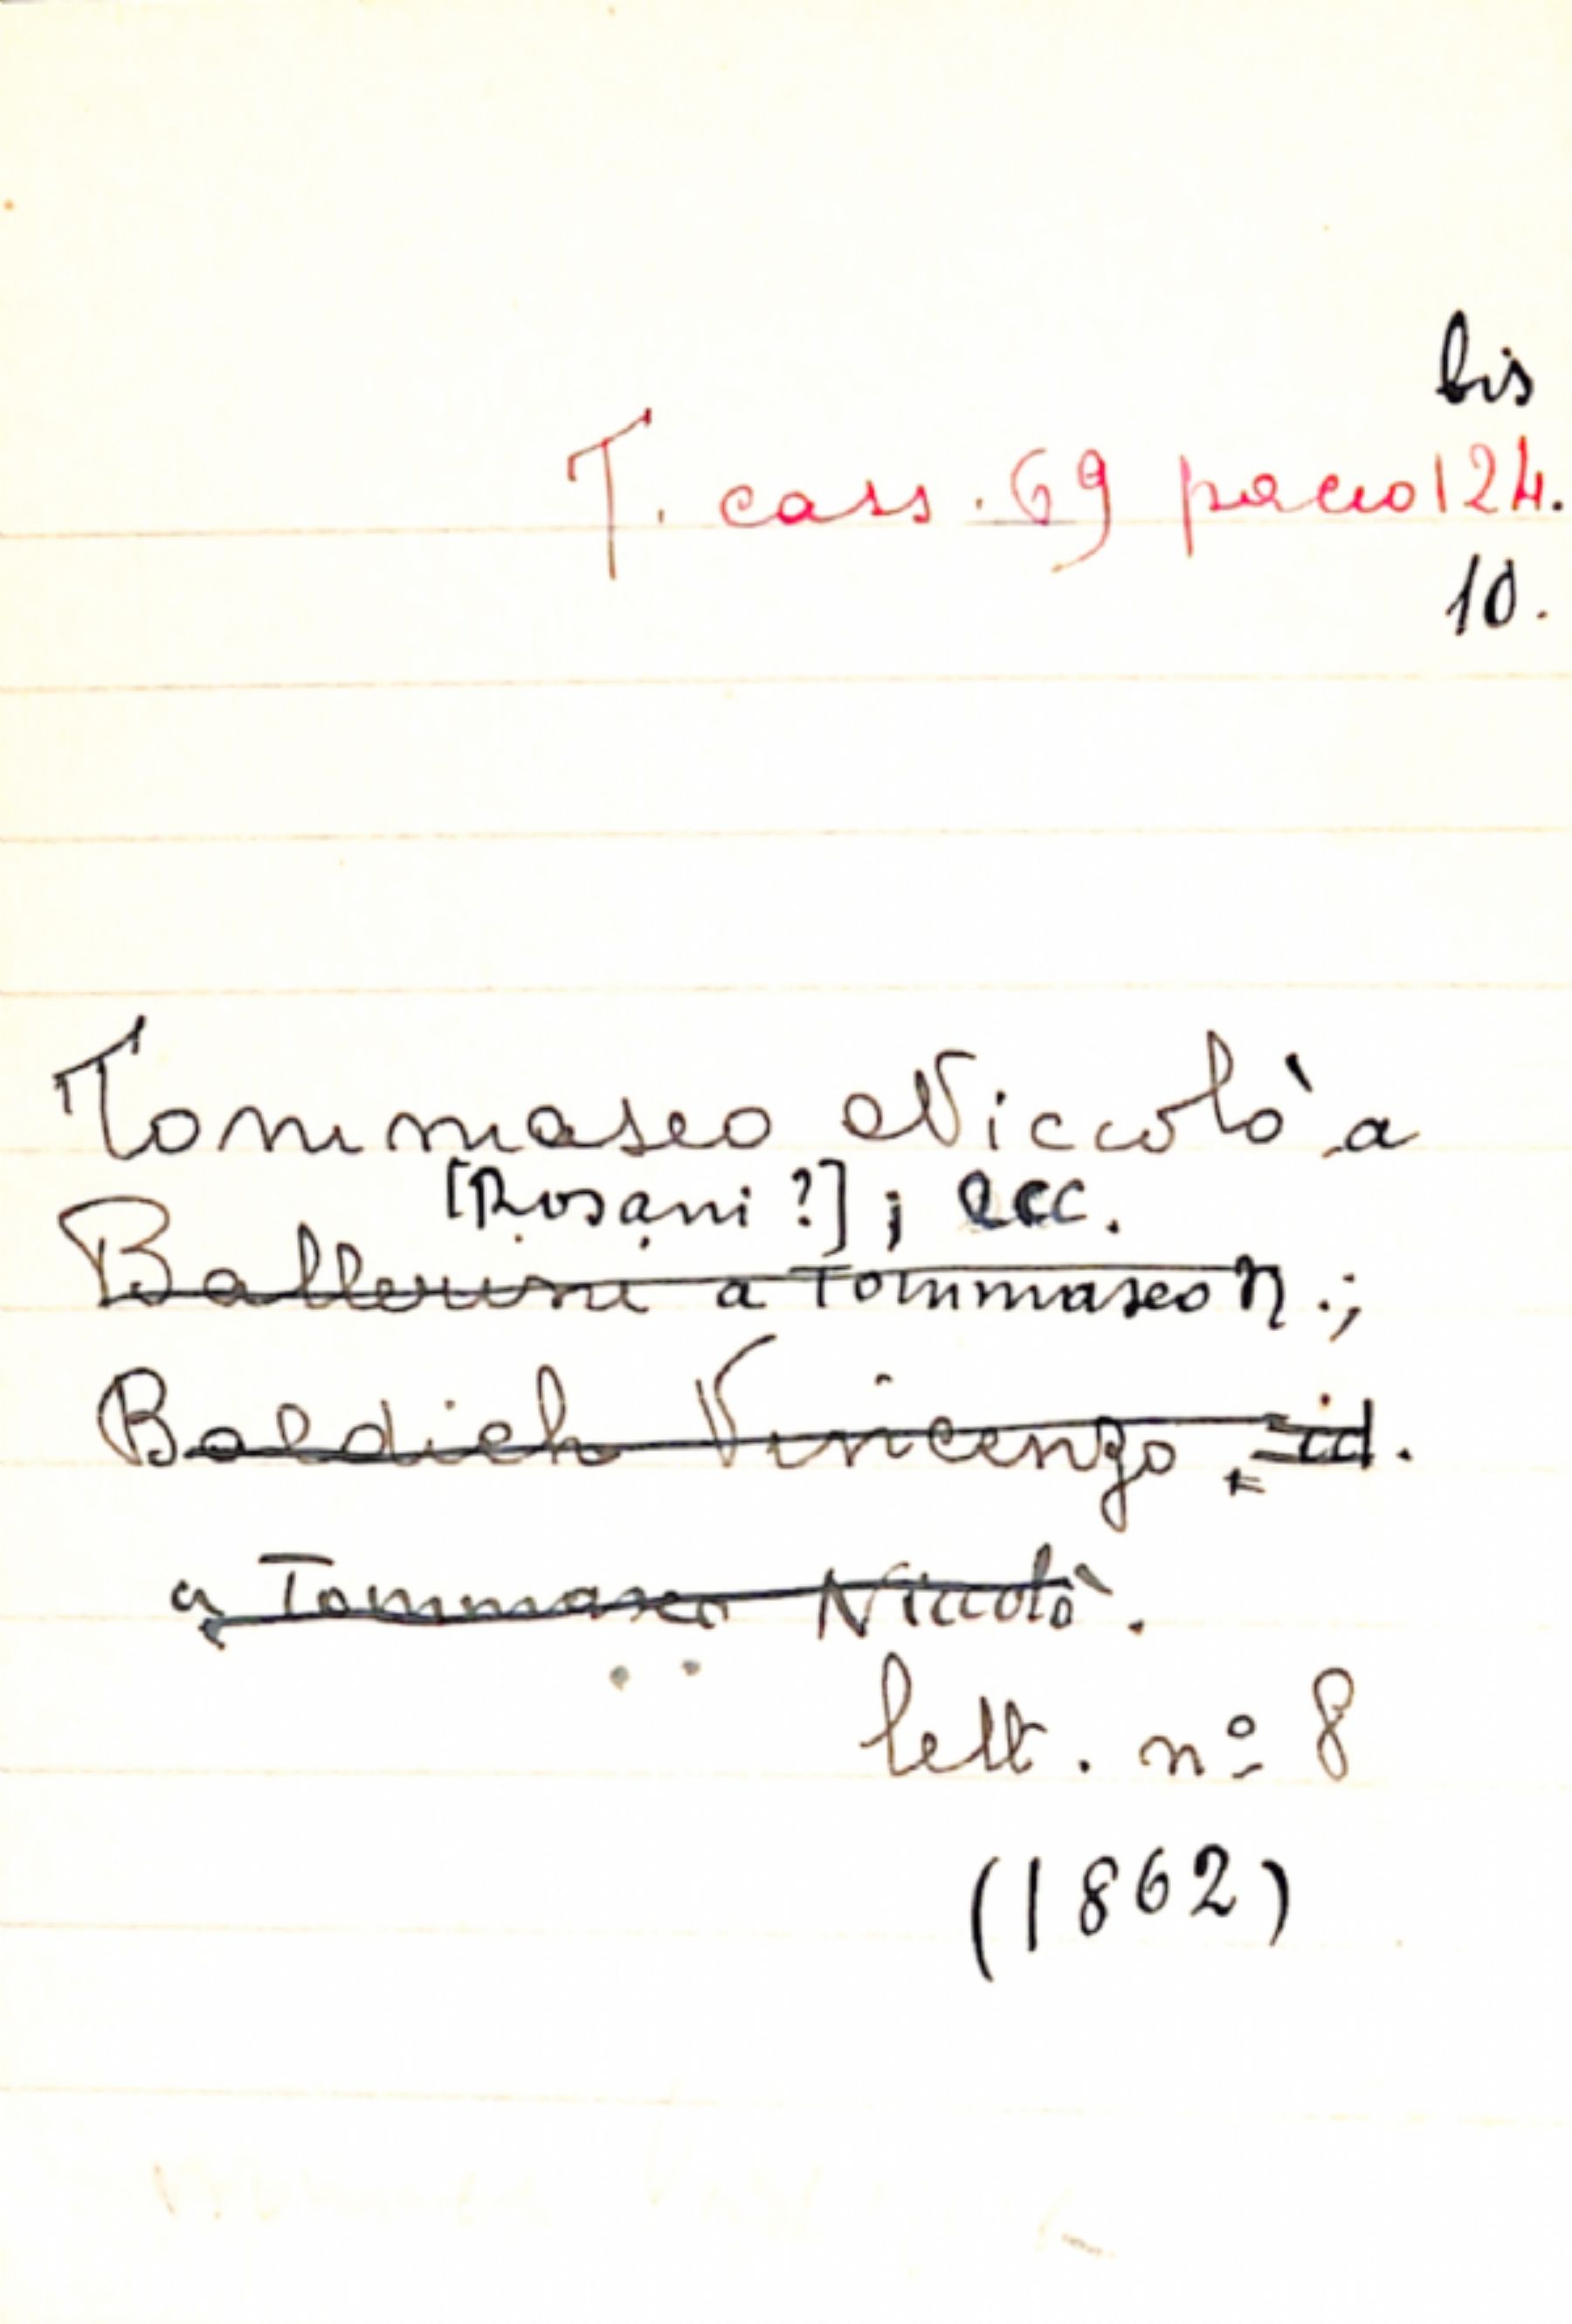 bis
T. cass. 69 pacco 124.
10.
Tommaseo Niccolò a
[Rosani ?] ; ecc.
Ballerini a Tommaseo N.;
Boldich Vincenzo, id.
a Tommaseo Niccolò.
lett. nº 8
(1862)